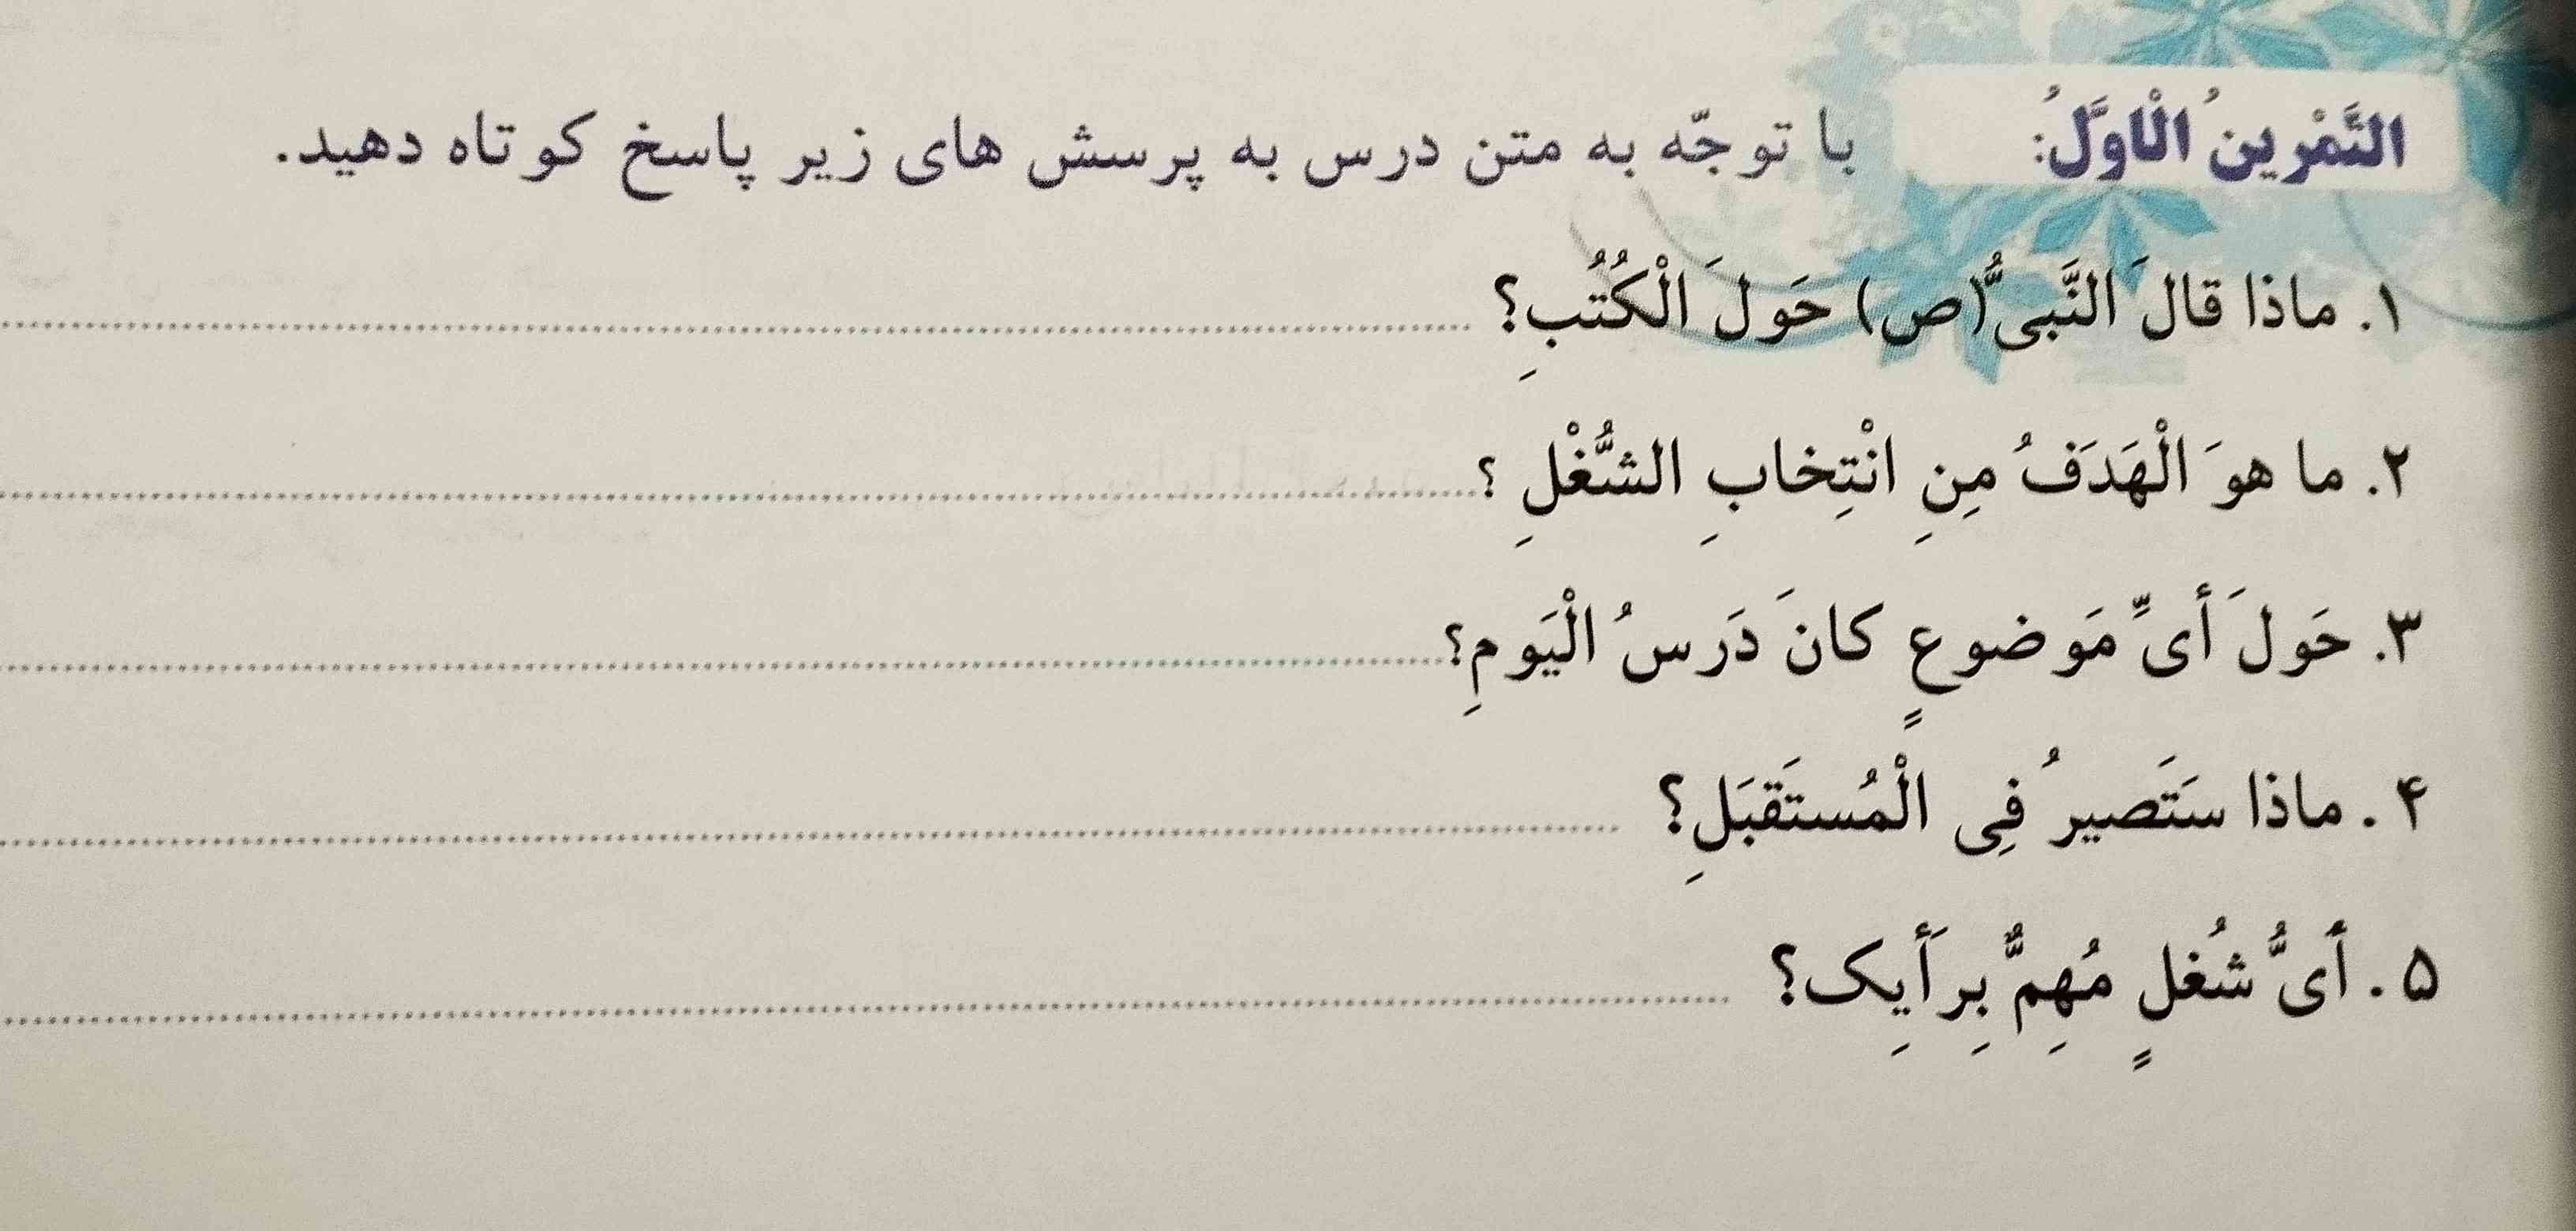 التَّمْرینُ الْاوَّلُ: با توجّه به متن درس به پرسش های زیر پاسخ کوتاه دهید.
۱. ماذا قالَ النَّبیُّ(ص) حَولَ الْکُتُبِ؟
۲. ما هوَ الْهَدَفُ مِنِ انْتِخابِ الشُّغْلِ ؟
۳. حَولَ أیِّ مَوضوعٍ کانَ دَرسُ الْیَومِ؟
۴. ماذا سَتَصیرُ فِی الْمُستَقبَلِ؟
۵. أیُّ شُغلٍ مُهِمٌّ بِرَأیِک؟